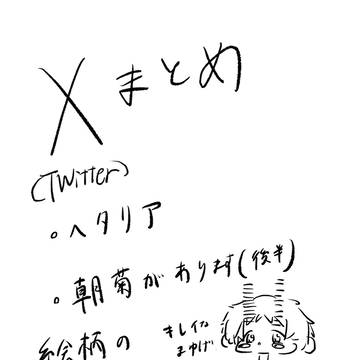 Xまとめ
(TWitter)
・ヘタリア
・朝菊があります(後半)
絵柄の
キレイな
まゆげ